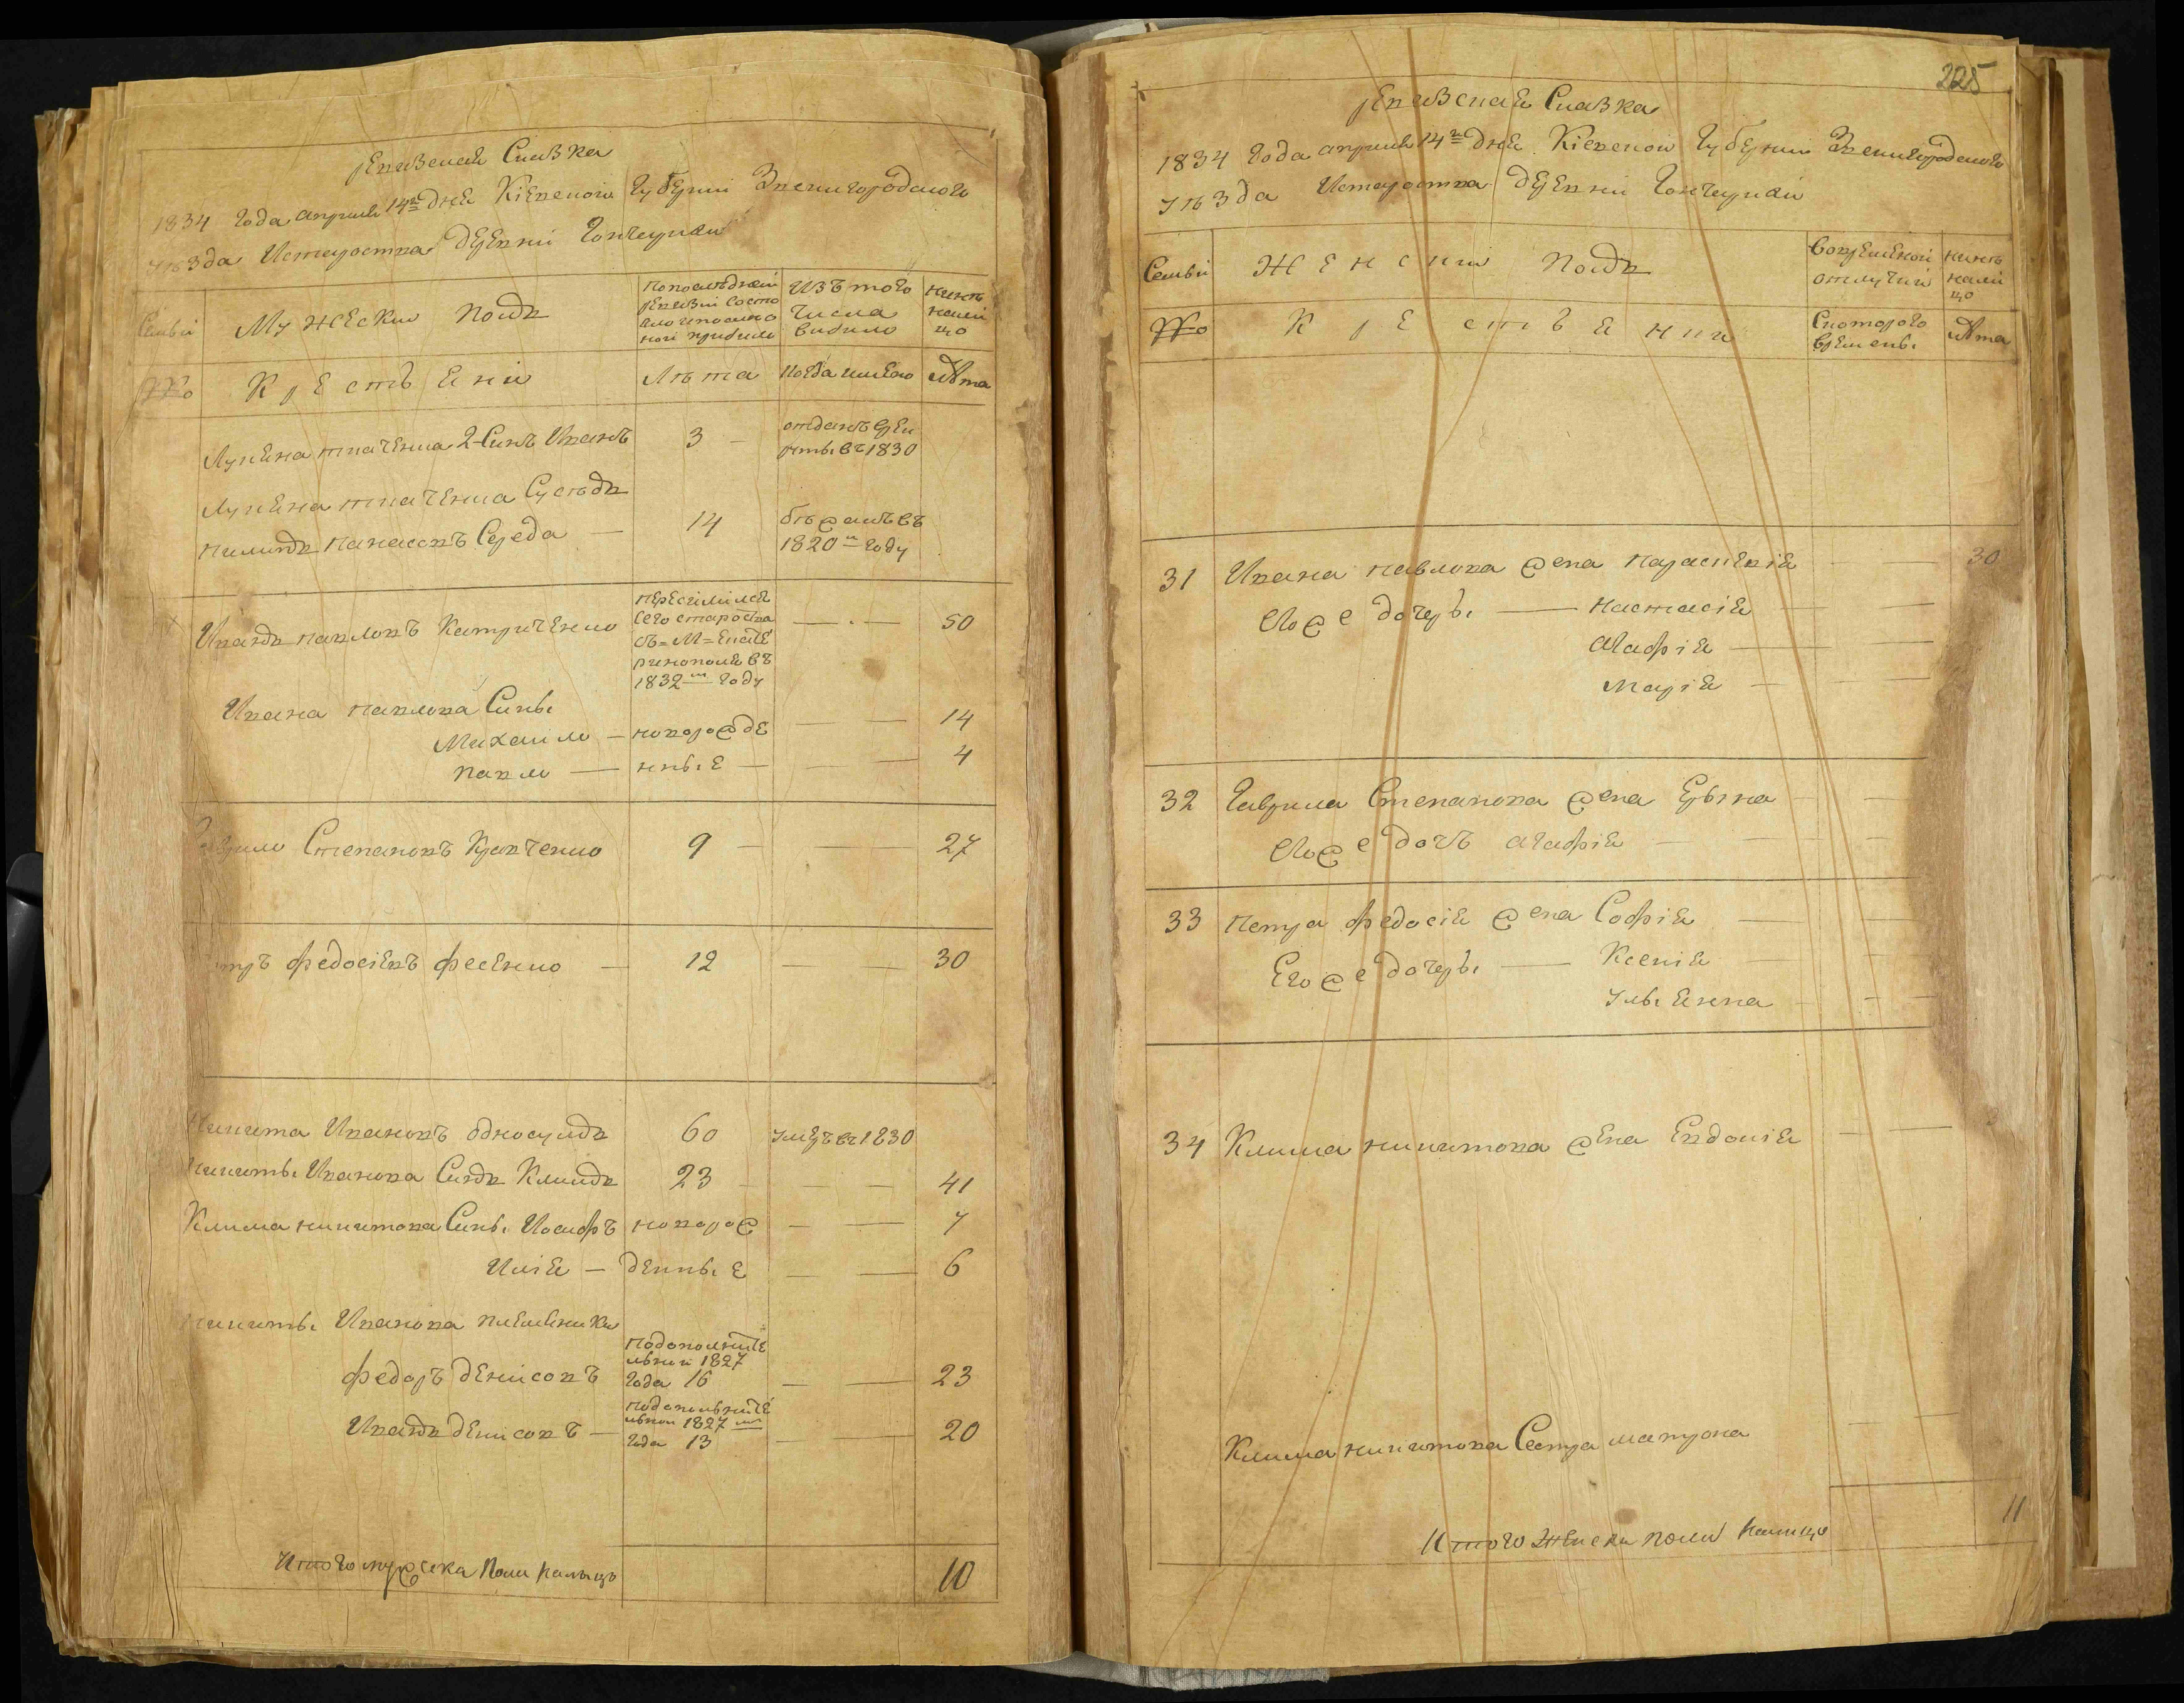 ревизская Сказка
1834 Года апреля 14го дня Кіевской Губерніи Звенигородского
уѣзда Истароства деревни Гончарихи
Семьи
Мужески полъ
по последней ревизіи состояло и после ной прибыло
изъ того числа выбыло
ныне налицо
№
Крестьяни
Лѣта
когда имено
лѣта
Лукяна ткаченка 2 Синъ Иванъ 3 — отданъ врекруты въ 1830
Лукяна ткаченка Сусѣдъ
пилипъ панасовъ Середа — 14 бѣжалъ въ 1820м Году
Иванъ павловъ Катриченко
переселился
сего староства
съ М Екате
ринополя въ
1832м Году
— 50
Ивана павлова Сины
Михайло — новорожде — 14
павло — нные — 4
Гаврило Степановъ Кравченко 9 — 27
Петръ федосіевъ фесенко — 12 — 30
Никита Ивановъ односумъ 60 умеръ въ 1830
Никиты Иванова Синъ Климъ 23 — 41
Клима никитова Сины Иосифъ новорож — 7
Илія — денные — 6
Никиты Иванова племеники
федоръ денисовъ
подополните
льной 1827
Года 16
— 23
Иванъ денисовъ —
подополните
льной 1827го
Года 13
— 20
Итого мужска пола налицо 10
225
ревизская Сказка
1834 Года апреля 14го дня Кіевской Губерніи Звенигородского
уѣзда Истароства деревни Гончарихи
Семьи
Женскій полъ
вовременой отлучки
ныне налицо
№
Крестьянки
Скоторого времены
лѣта
30
31 Ивана павлова жена параскевія
Егоже дочеры — настасія
Агафія
марія
32 Гаврила Степанова жена Ерына
Егоже дочъ агафія
33 петра федосія жена Софія
Егоже дочеры — Ксенія
Ульянна
34 Клима никитова жена Евдокія
Клима никитова Сестра матрона
Итого женска пола налицо 11